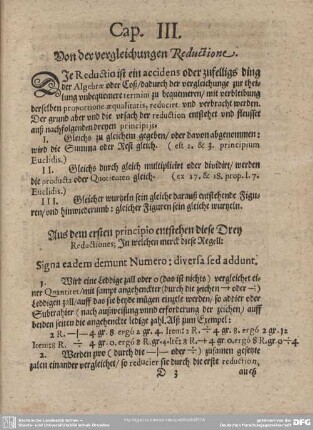 Cap. III.
Von der vergleichungen Reductione.
DJe Reductio ist ein accidens oder zufelligs ding
der Algebræ oder Coß/dadurch der vergleichunge zur thei-
lung unbequemere termini zu bequemeren/mit verbleibung
derselben proportione æqualitatis, reduciret und verbracht werden.
Der grund aber und die ursach der reduction entstehet und fleusset
auß nachfolgenden dreyen principijs.
I. Gleichs zu gleichem gegeben/oder davon abgenommen:
wird die Summa oder Rest gleich. (est 2. & 3. principium
Euclidis.)
II. Gleichs durch gleich multiplicirt oder dividirt/werden
die producta oder Quotienten gleich. (ex 17. & 18. prop. l. 7.
Euclid.)
III. Gleicher wurtzeln sein gleiche darauß entstehende Figu-
ren/und hinwiederumb: gleicher Figuren sein gleiche wurtzeln.
Aus dem ersten principio entstehen diese Drey
Reductiones; In welchen merck diese Regell:
Signa eadem demunt Numero: diversa sed addunt.
1. Wird eine Leddige zall oder 0 (das ist nichts) vergleichet ei-
ner Quantitet/mit sampt angehenckter (durch die zeichen → oder ÷)
Leddigen zall/auff das sie beyde mügen eintzele werden/so addier oder
Subtrahier (nach außweisung unnd erforderung der zeichen) auff
beyden seiten die angehenckte ledige zahl. Als zum Exempel:
2. Werden zwo (durch die —|— oder ÷) zusamen gesetzte
zalen einander vergleichet/so reducier sie durch die ersten reduction.
D 3 auch